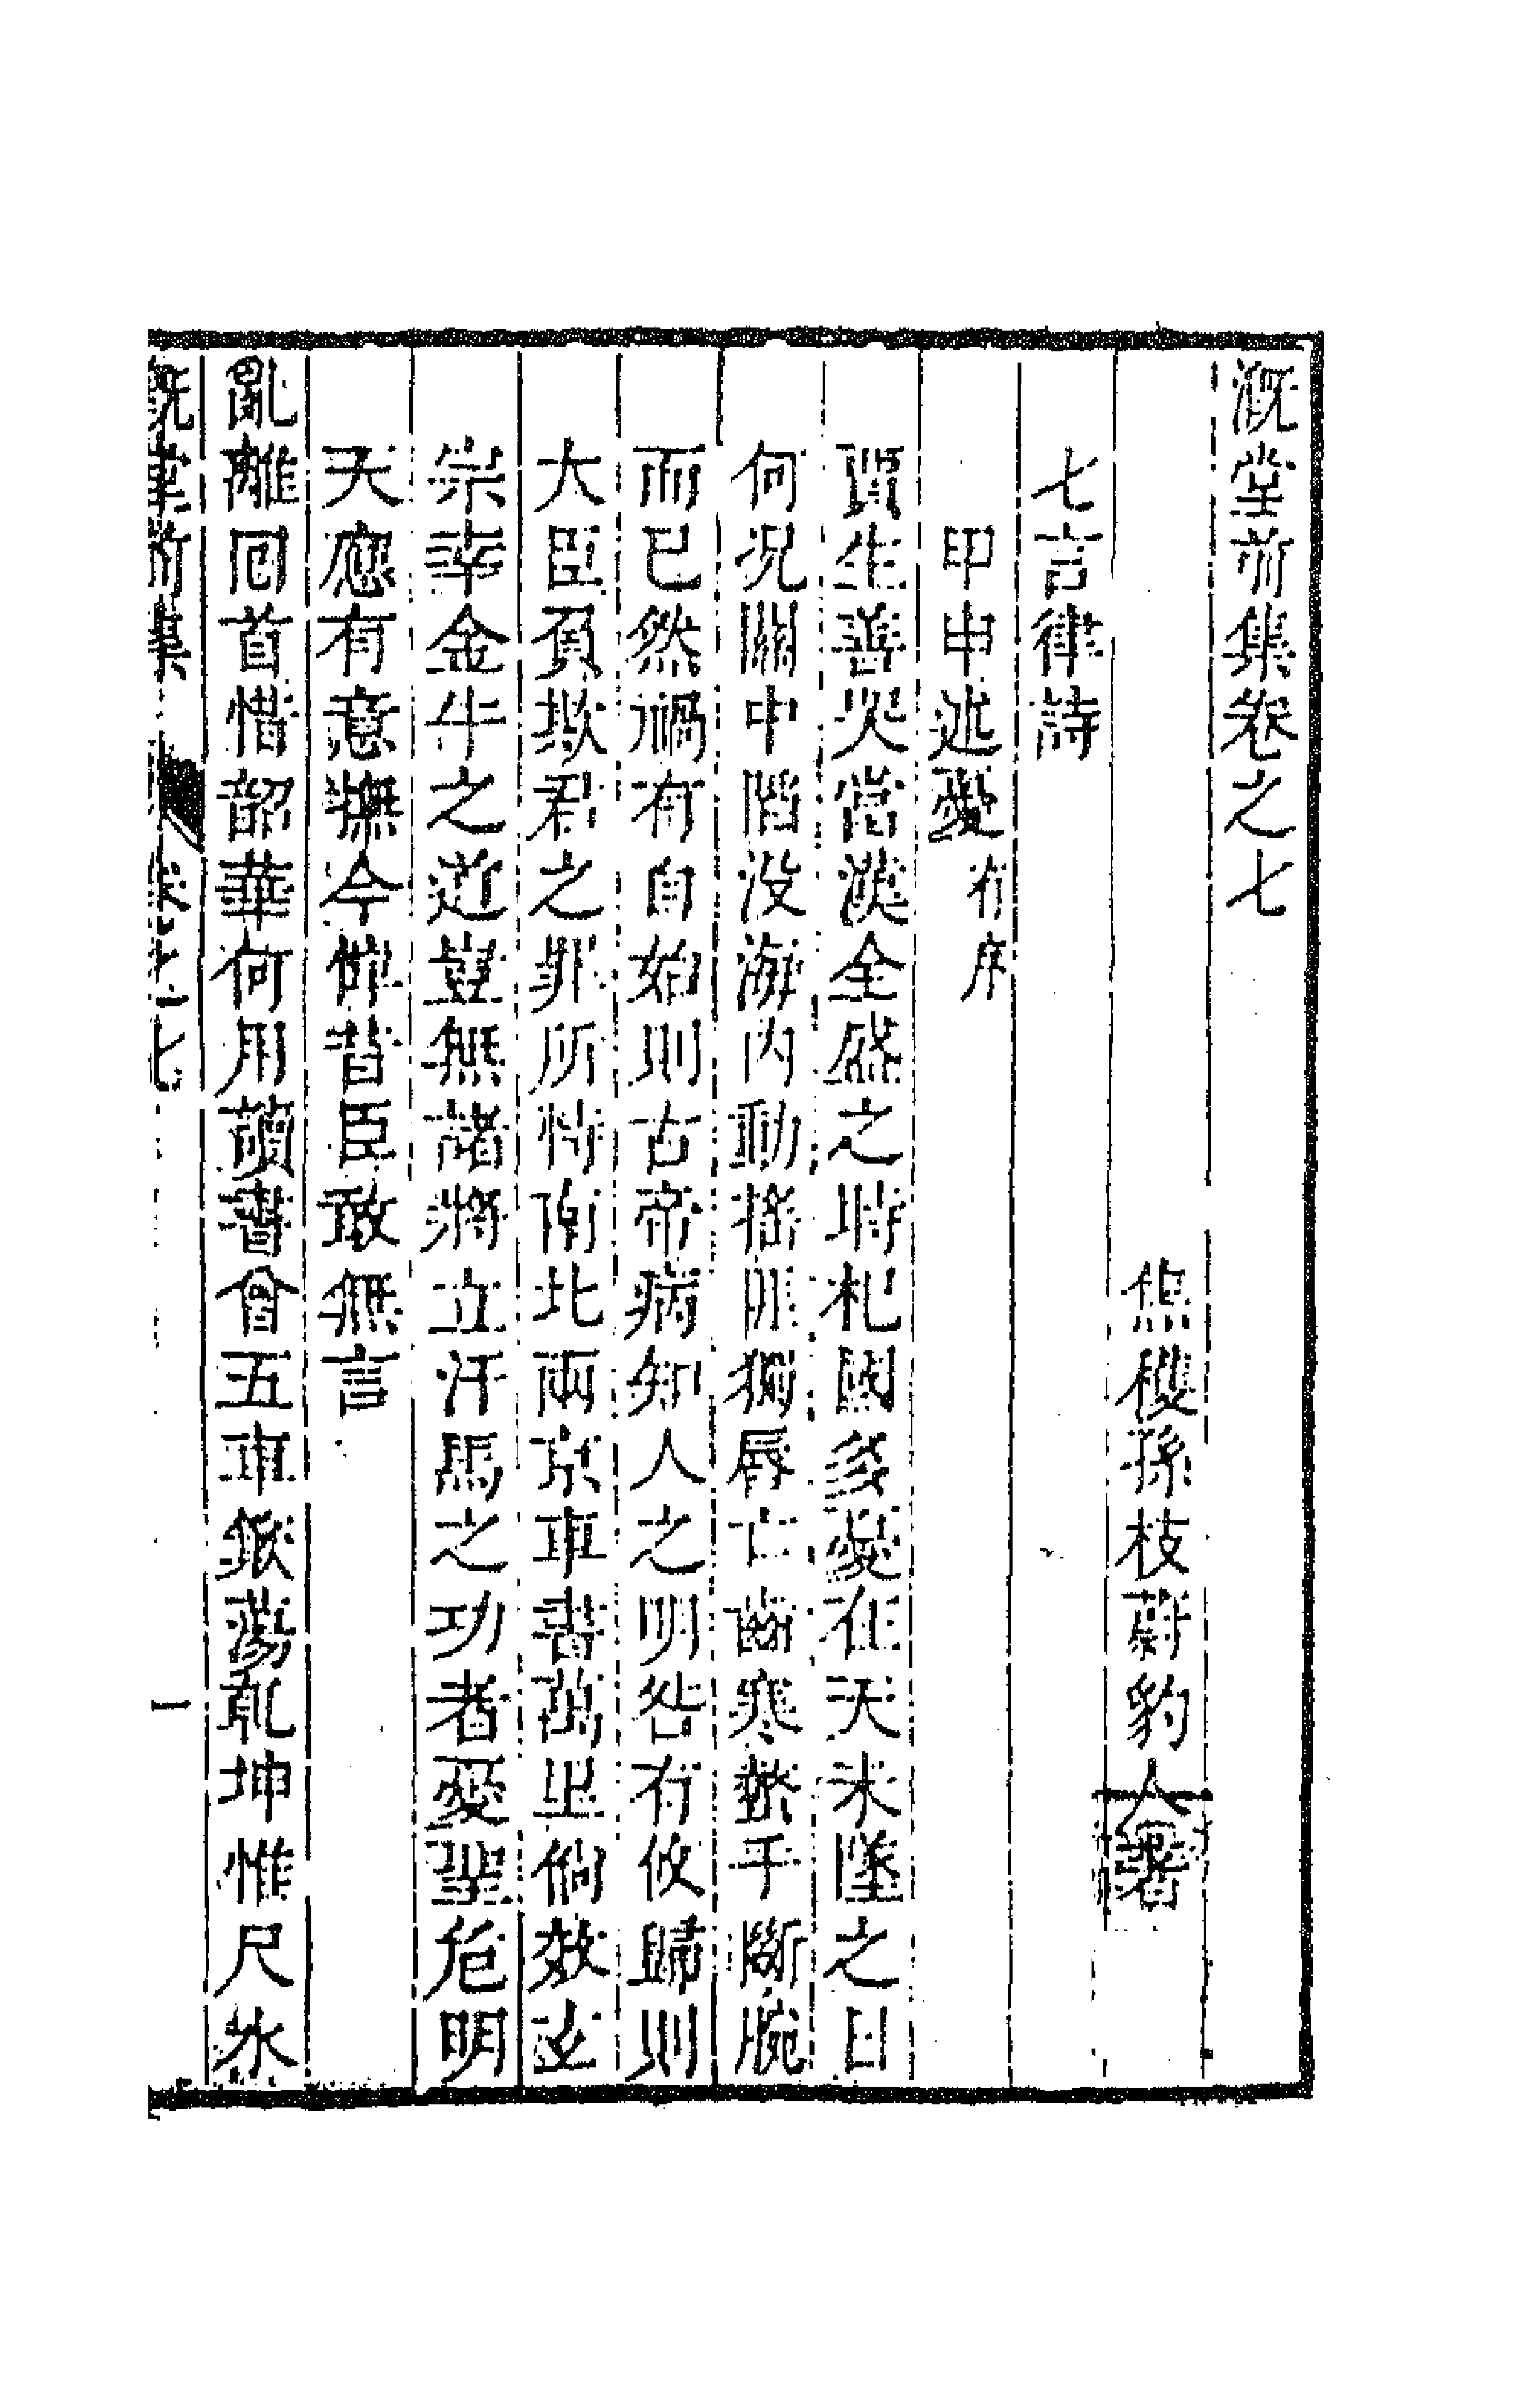 溉堂前集卷之七
焦穫孫枝蔚豹人著
七言律詩
甲申述憂有序
賈生善哭當漢全盛之時杞國多憂在天未墜之日
何況關中陷没海内動搖非獨辱亡齒寒螫手斷腕
而已然禍有自始則古帝病知人之明咎有攸歸則
大臣負欺君之罪所恃南北兩京車書萬里倘效玄
宗幸金牛之道豈無諸將立汗馬之功者憂聖危明
天應有意撫今悼昔臣敢無言
亂離回首惜韶華何用讀書曾五車板蕩乾坤惟尺水
溉堂前集 卷之七 一